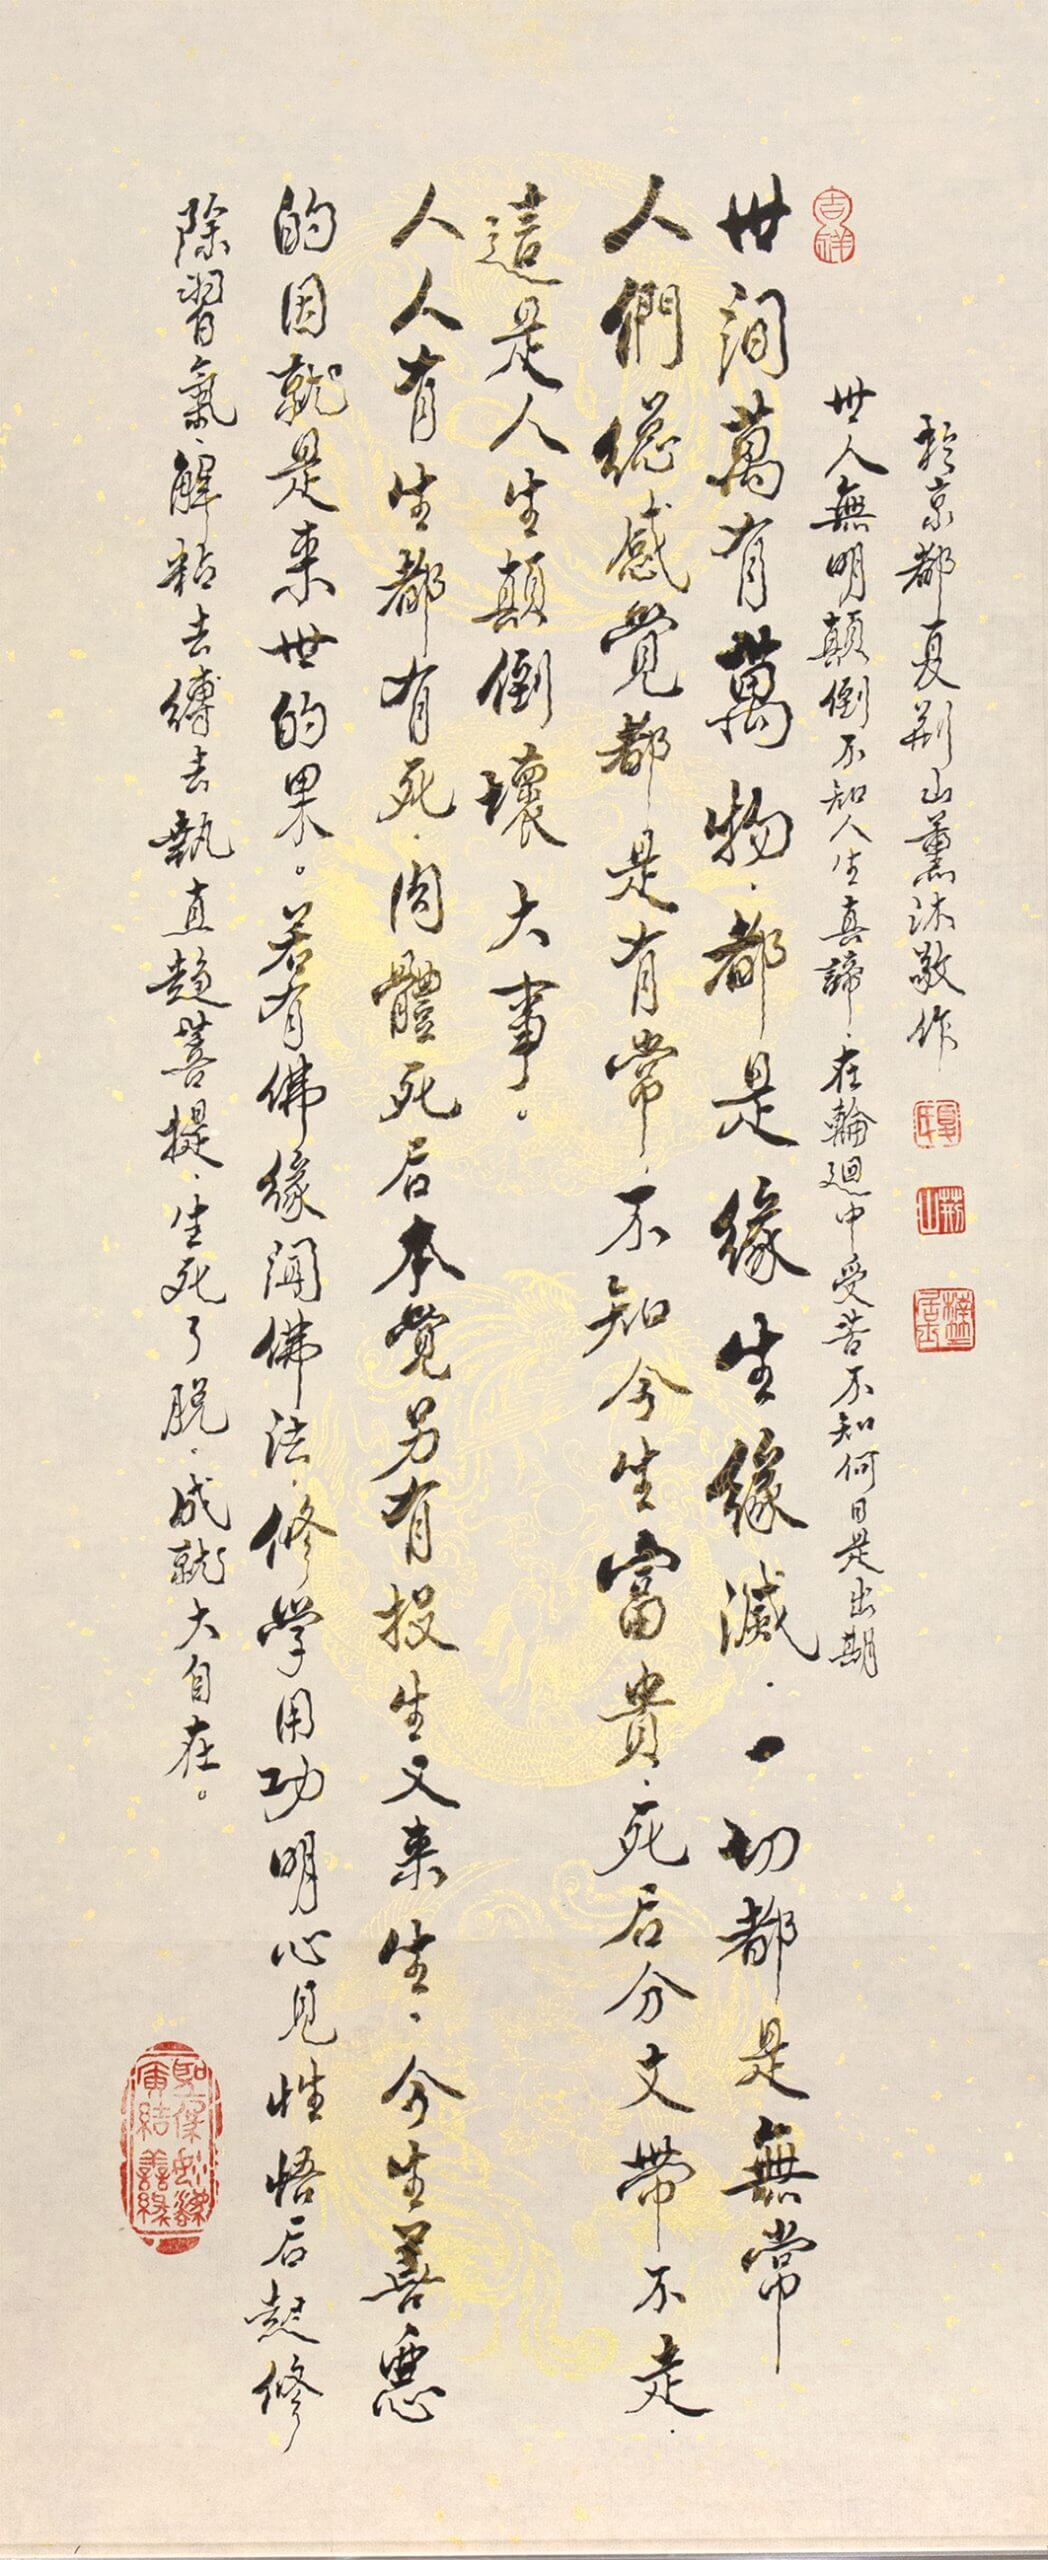 吉祥
世间萬有萬物．都是緣生緣滅．一切都是無常
人們總感覺都是有常．不知今生富貴．死后分文帶不走．
這是人生顛倒壞大事。
人人有生都有死．肉體死后本覺另有投生又来生．今生善惡
的因就是来世的果。若有佛緣聞佛法．修學用功明心見性悟后起修
除習氣．解粘去縛去執直趨菩提．生死了脱．成就大自在。
世人無明顛倒不知人生真諦．在輪迴中受苦不知何日是出期
於京都夏荊山薰沐敬作
夏氏
荊山